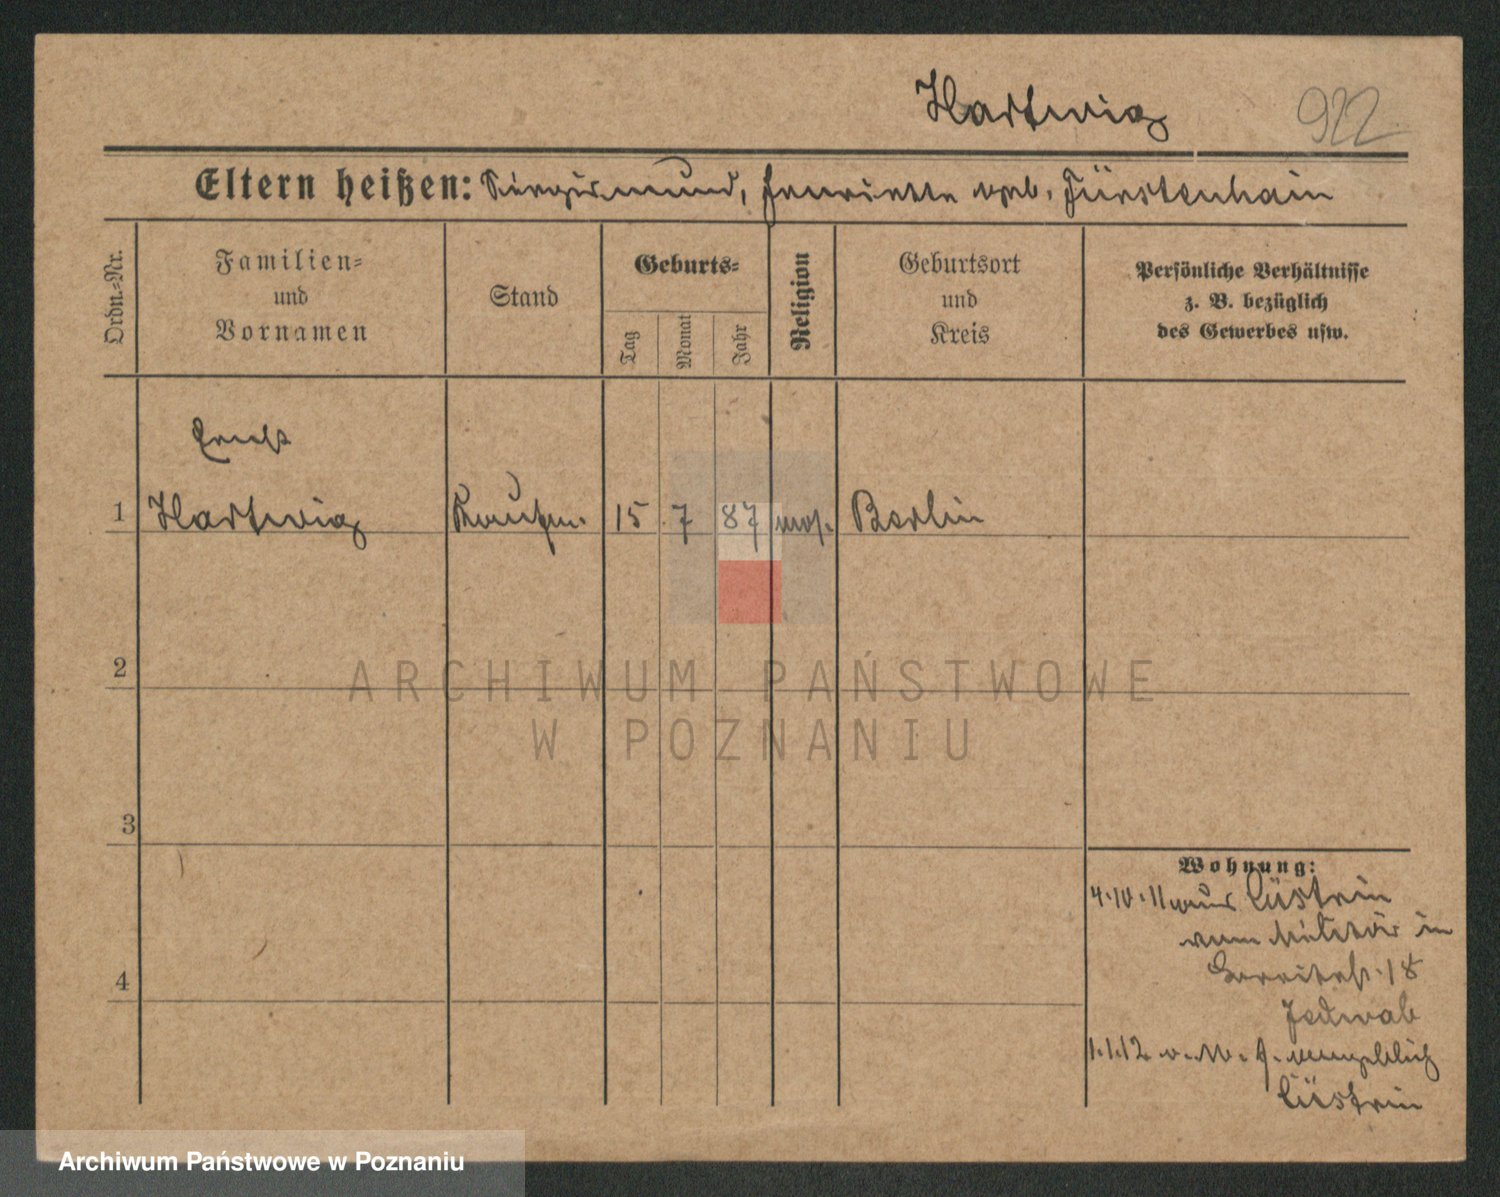 Hartwig 922
Eltern heißen: Siegismund, Henriette geb. Fürstenhain
Ordn.-Nr.
Familien-
und
Vornamen
Stand
Geburts-
Tag
Monat
Jahr
Religion
Geburtsort
und
Kreis
Persönliche Verhältnisse
z. B. bezüglich
des Gewerbes usw.
Erich
1 Hartwig Kaufm. 15 7 87 mos. Berlin
2
3
4
Wohnung:
4.10.11 aus Cüstrin
vom Militär in
Breitestr. 18
Jedwab
1.1.12 angeblich
Cüstrin
ARCHIWUM PAŃSTWOWE
W POZNANIU
Archiwum Państwowe w Poznaniu